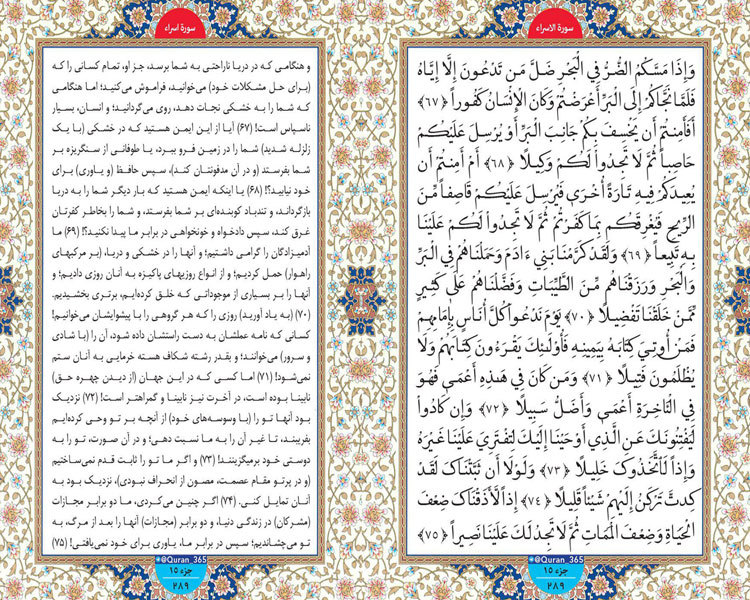 سورة الاسراء
وَإِذَا مَسَّكُمُ الضُّرُّ فِي الْبَحْرِ ضَلَّ مَن تَدْعُونَ إِلَّا إِيَّاهُ
فَلَمَّا نَجَّاكُمْ إِلَى الْبَرِّ أَعْرَضْتُمْ وَكَانَ الْإِنْسَانُ كَفُوراً ﴿۶۷﴾
أَفَأَمِنتُمْ أَن يَخْسِفَ بِكُمْ جَانِبَ الْبَرِّ أَوْ يُرْسِلَ عَلَيْكُمْ
حَاصِباً ثُمَّ لَا تَجِدُوا لَكُمْ وَكِيلًا ﴿۶۸﴾ أَمْ أَمِنتُمْ أَن
يُعِيدَكُمْ فِيهِ تَارَةً أُخْرَى فَيُرْسِلَ عَلَيْكُمْ قَاصِفاً مِّنَ
الرِّيحِ فَيُغْرِقَكُم بِمَا كَفَرْتُمْ ثُمَّ لَا تَجِدُوا لَكُمْ عَلَيْنَا
بِهِ تَبِيعاً ﴿۶۹﴾ وَلَقَدْ كَرَّمْنَا بَنِي ءَادَمَ وَحَمَلْنَاهُمْ فِي الْبَرِّ
وَالْبَحْرِ وَرَزَقْنَاهُم مِّنَ الطَّيِّبَاتِ وَفَضَّلْنَاهُمْ عَلَى كَثِيرٍ
مِّمَّنْ خَلَقْنَا تَفْضِيلًا ﴿۷۰﴾ يَوْمَ نَدْعُوا كُلَّ أُنَاسٍ بِإِمَامِهِمْ
فَمَنْ أُوتِيَ كِتَابَهُ بِيَمِينِهِ فَأُولَئِكَ يَقْرَءُونَ كِتَابَهُمْ وَلَا
يُظْلَمُونَ فَتِيلًا ﴿۷۱﴾ وَمَن كَانَ فِي هَذِهِ أَعْمَى فَهُوَ
فِي الْآخِرَةِ أَعْمَى وَأَضَلُّ سَبِيلًا ﴿۷۲﴾ وَإِن كَادُوا
لَيَفْتِنُونَكَ عَنِ الَّذِي أَوْحَيْنَا إِلَيْكَ لِتَفْتَرِيَ عَلَيْنَا غَيْرَهُ
وَإِذاً لَّاتَّخَذُوكَ خَلِيلًا ﴿۷۳﴾ وَلَوْلَا أَن ثَبَّتْنَاكَ لَقَدْ
كِدتَّ تَرْكَنُ إِلَيْهِمْ شَيْئاً قَلِيلًا ﴿۷۴﴾ إِذاً لَّأَذَقْنَاكَ ضِعْفَ
الْحَيَاةِ وَضِعْفَ الْمَمَاتِ ثُمَّ لَا تَجِدُ لَكَ عَلَيْنَا نَصِيراً ﴿۷۵﴾
@Quran_365
جزء ۱۵
۲۸۹
سورة اسراء
و هنگامی که در دریا ناراحتی به شما برسد، جز او، تمام کسانی را که
(برای حل مشکلات خود) می‌خوانید، فراموش می‌کنید؛ اما هنگامی
که شما را به خشکی نجات دهد، روی می‌گردانید؛ و انسان، بسیار
ناسپاس است! (۶۷) آیا از این ایمن هستید که در خشکی (با یک
زلزله شدید) شما را در زمین فرو ببرد، یا طوفانی از سنگریزه بر
شما بفرستد (و در آن مدفونتان کند)، سپس حافظ (و یاوری) برای
خود نیابید؟! (۶۸) یا اینکه ایمن هستید که بار دیگر شما را به دریا
بازگرداند، و تندباد کوبنده‌ای بر شما بفرستد، و شما را بخاطر کفرتان
غرق کند، سپس دادخواه و خونخواهی در برابر ما پیدا نکنید؟! (۶۹) ما
آدمیزادگان را گرامی داشتیم؛ و آنها را در خشکی و دریا، (بر مرکبهای
راهوار) حمل کردیم؛ و از انواع روزیهای پاکیزه به آنان روزی دادیم؛ و
آنها را بر بسیاری از موجوداتی که خلق کرده‌ایم، برتری بخشیدیم.
(۷۰) (به یاد آورید) روزی را که هر گروهی را با پیشوایشان می‌خوانیم!
کسانی که نامه عملشان به دست راستشان داده شود، آن را (با شادی
و سرور) می‌خوانند؛ و بقدر رشته شکاف هسته خرمایی به آنان ستم
نمی‌شود! (۷۱) اما کسی که در این جهان (از دیدن چهره حق)
نابینا بوده است، در آخرت نیز نابینا و گمراهتر است! (۷۲) نزدیک
بود آنها تو را (با وسوسه‌های خود) از آنچه بر تو وحی کرده‌ایم
بفریبند، تا غیر آن را به ما نسبت دهی؛ و در آن صورت، تو را به
دوستی خود برمیگزینند! (۷۳) و اگر ما تو را ثابت قدم نمی‌ساختیم
(و در پرتو مقام عصمت، مصون از انحراف نبودی)، نزدیک بود به
آنان تمایل کنی. (۷۴) اگر چنین می‌کردی، ما دو برابر مجازات
(مشرکان) در زندگی دنیا، و دو برابر (مجازات) آنها را بعد از مرگ، به
تو می‌چشاندیم؛ سپس در برابر ما، یاوری برای خود نمی‌یافتی! (۷۵)
@Quran_365
جزء ۱۵
۲۸۹